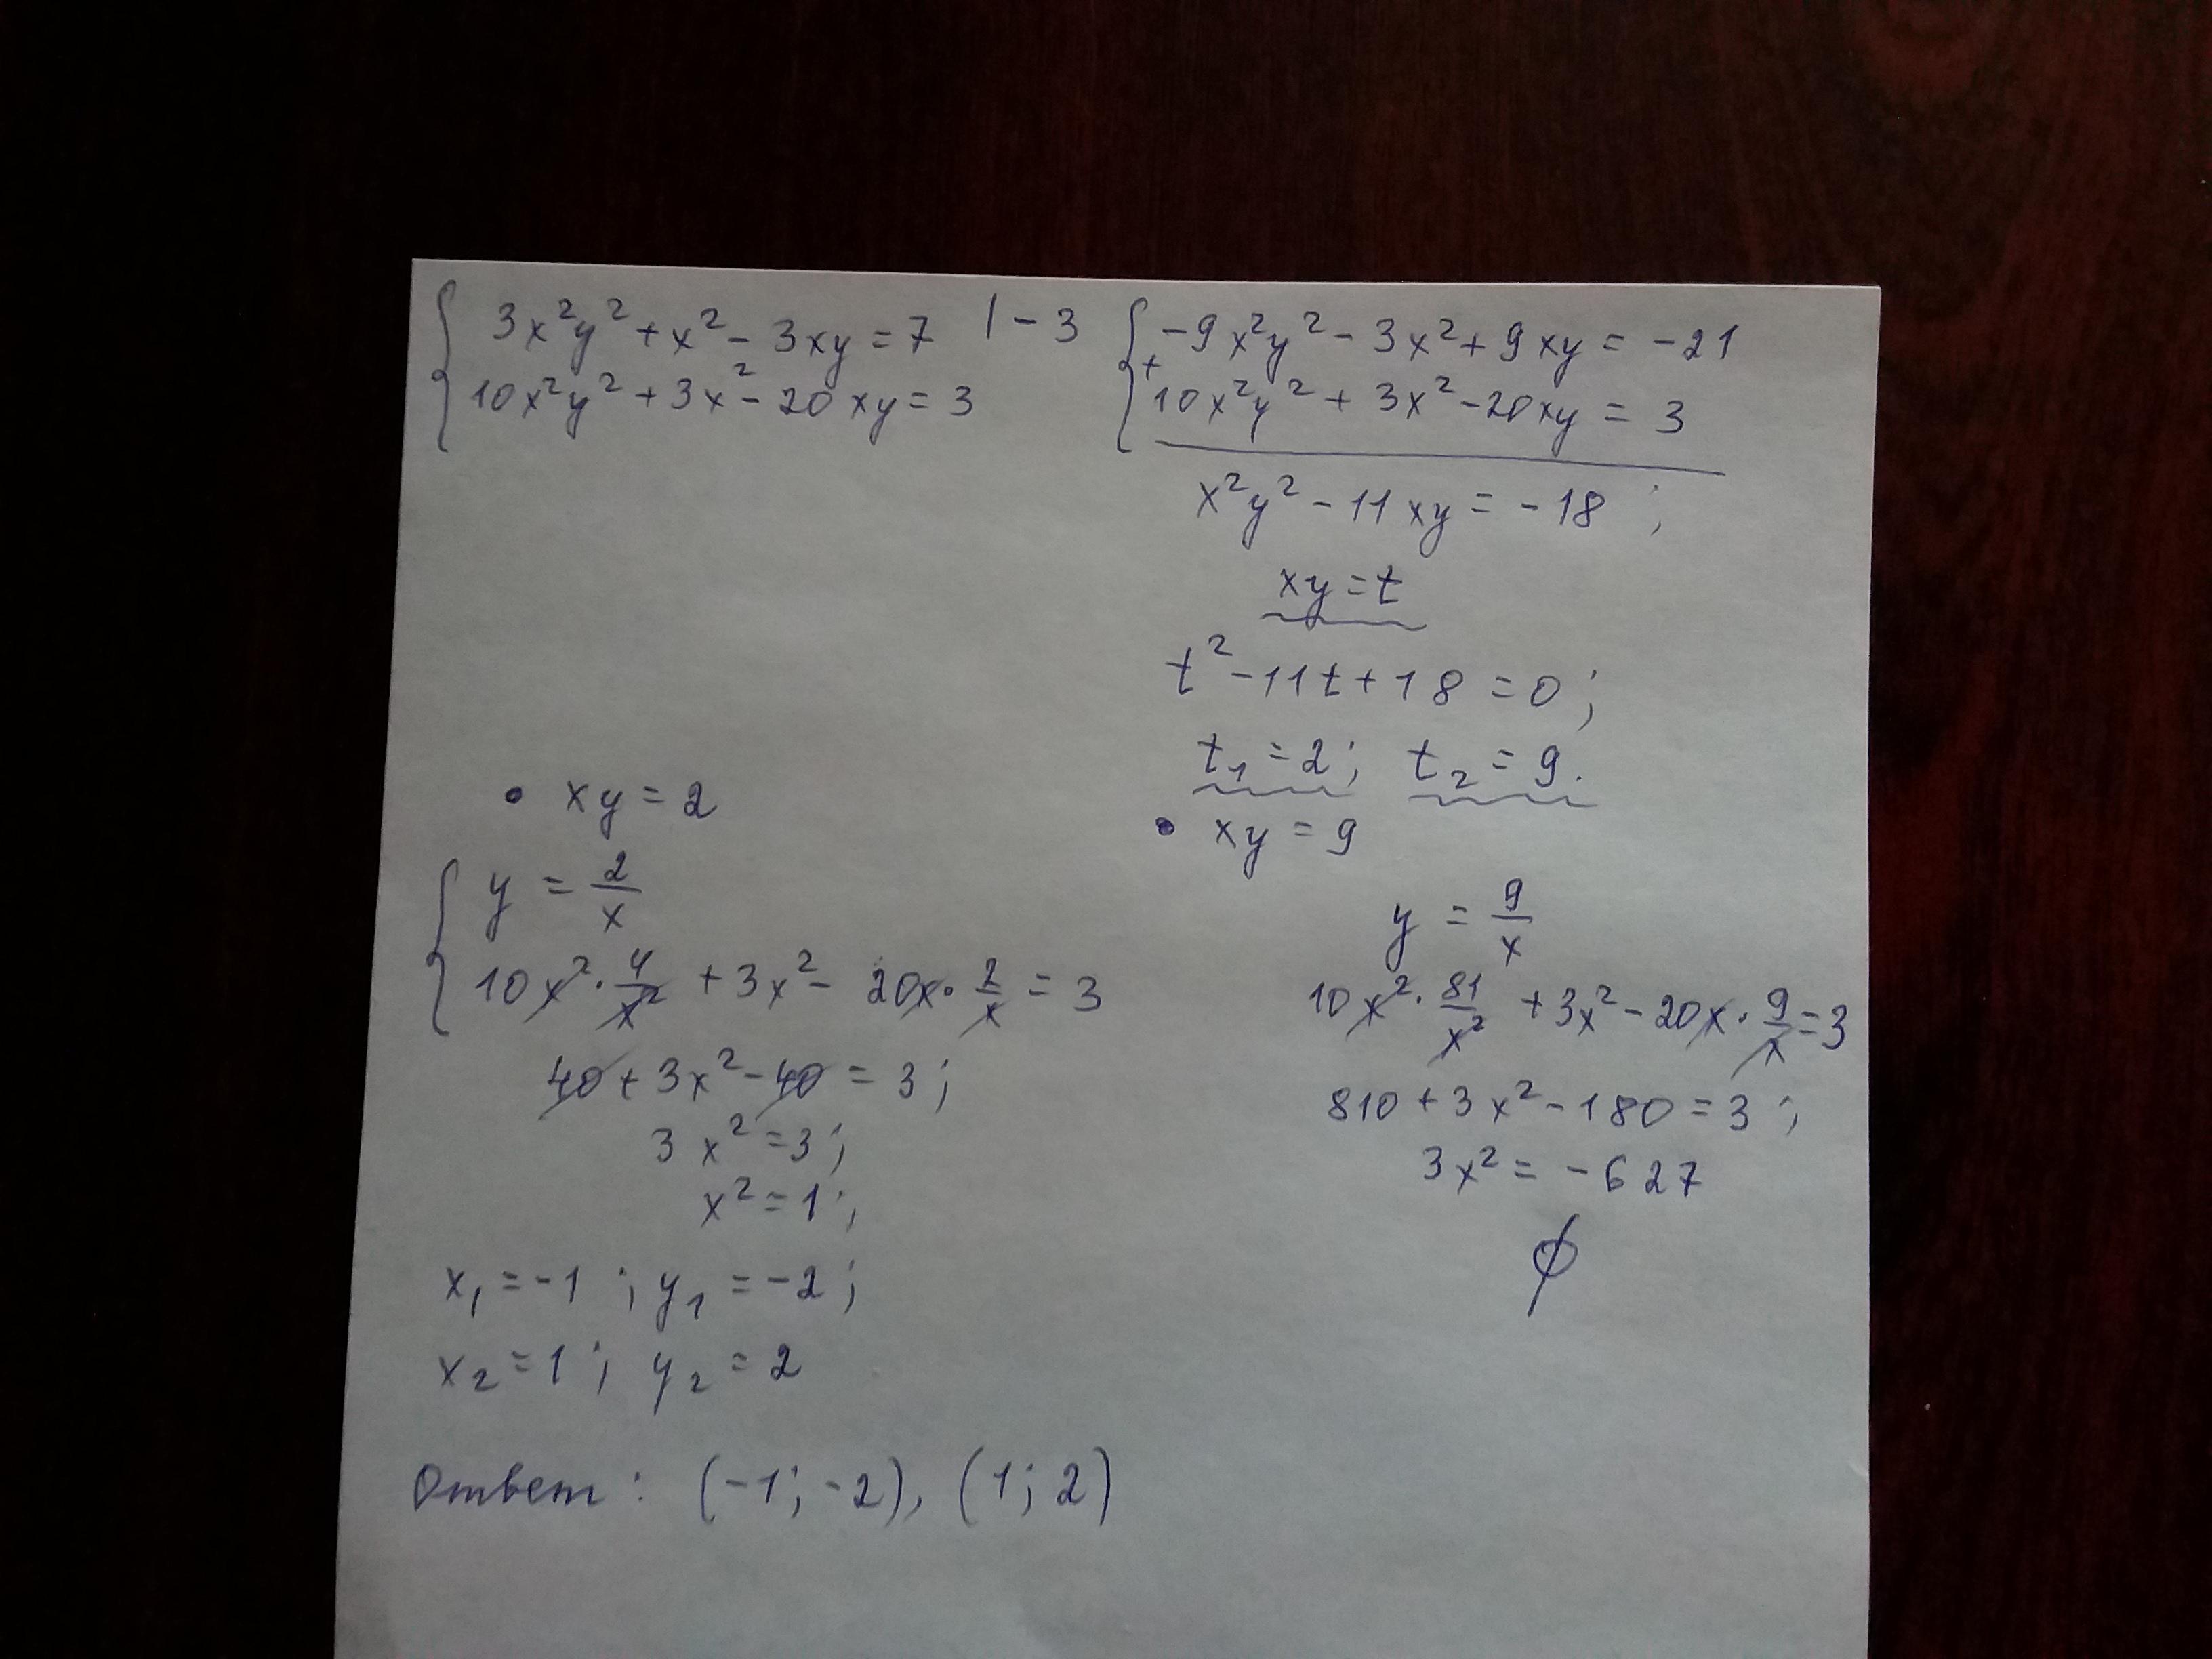 { 3x²y² + x² - 3xy = 7 | -3
10x²y² + 3x² - 20xy = 3
{ -9x²y² - 3x² + 9xy = -21
+
10x²y² + 3x² - 20xy = 3
x²y² - 11xy = -18 ;
xy = t
t² - 11t + 18 = 0 ;
t₁ = 2 ; t₂ = 9 .
• xy = 2
{ y = 2/x
10x² · 4/x² + 3x² - 20x · 2/x = 3
40 + 3x² - 40 = 3 ;
3x² = 3 ;
x² = 1 ;
x₁ = -1 ; y₁ = -2 ;
x₂ = 1 ; y₂ = 2
• xy = 9
y = 9/x
10x² · 81/x² + 3x² - 20x · 9/x = 3
810 + 3x² - 180 = 3 ;
3x² = -627
∅
Ответ : (-1; -2), (1; 2)